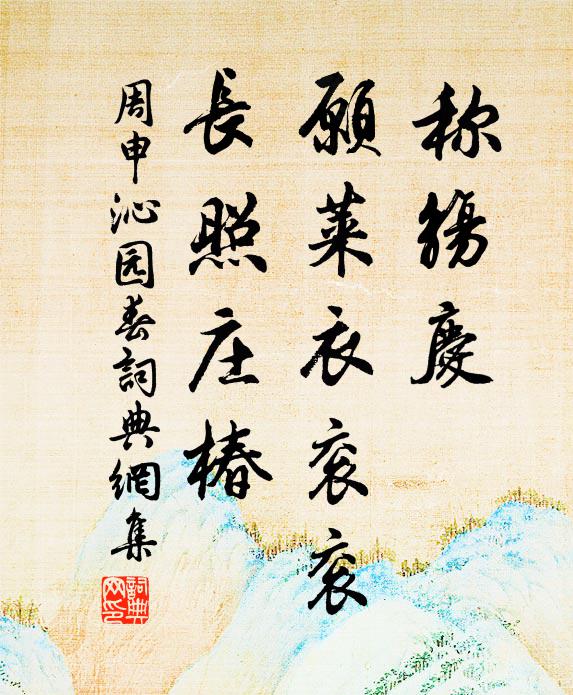 称觞慶
願莱衣衮衮
長照庄椿
周申沁园春詞典網集
詞典网印